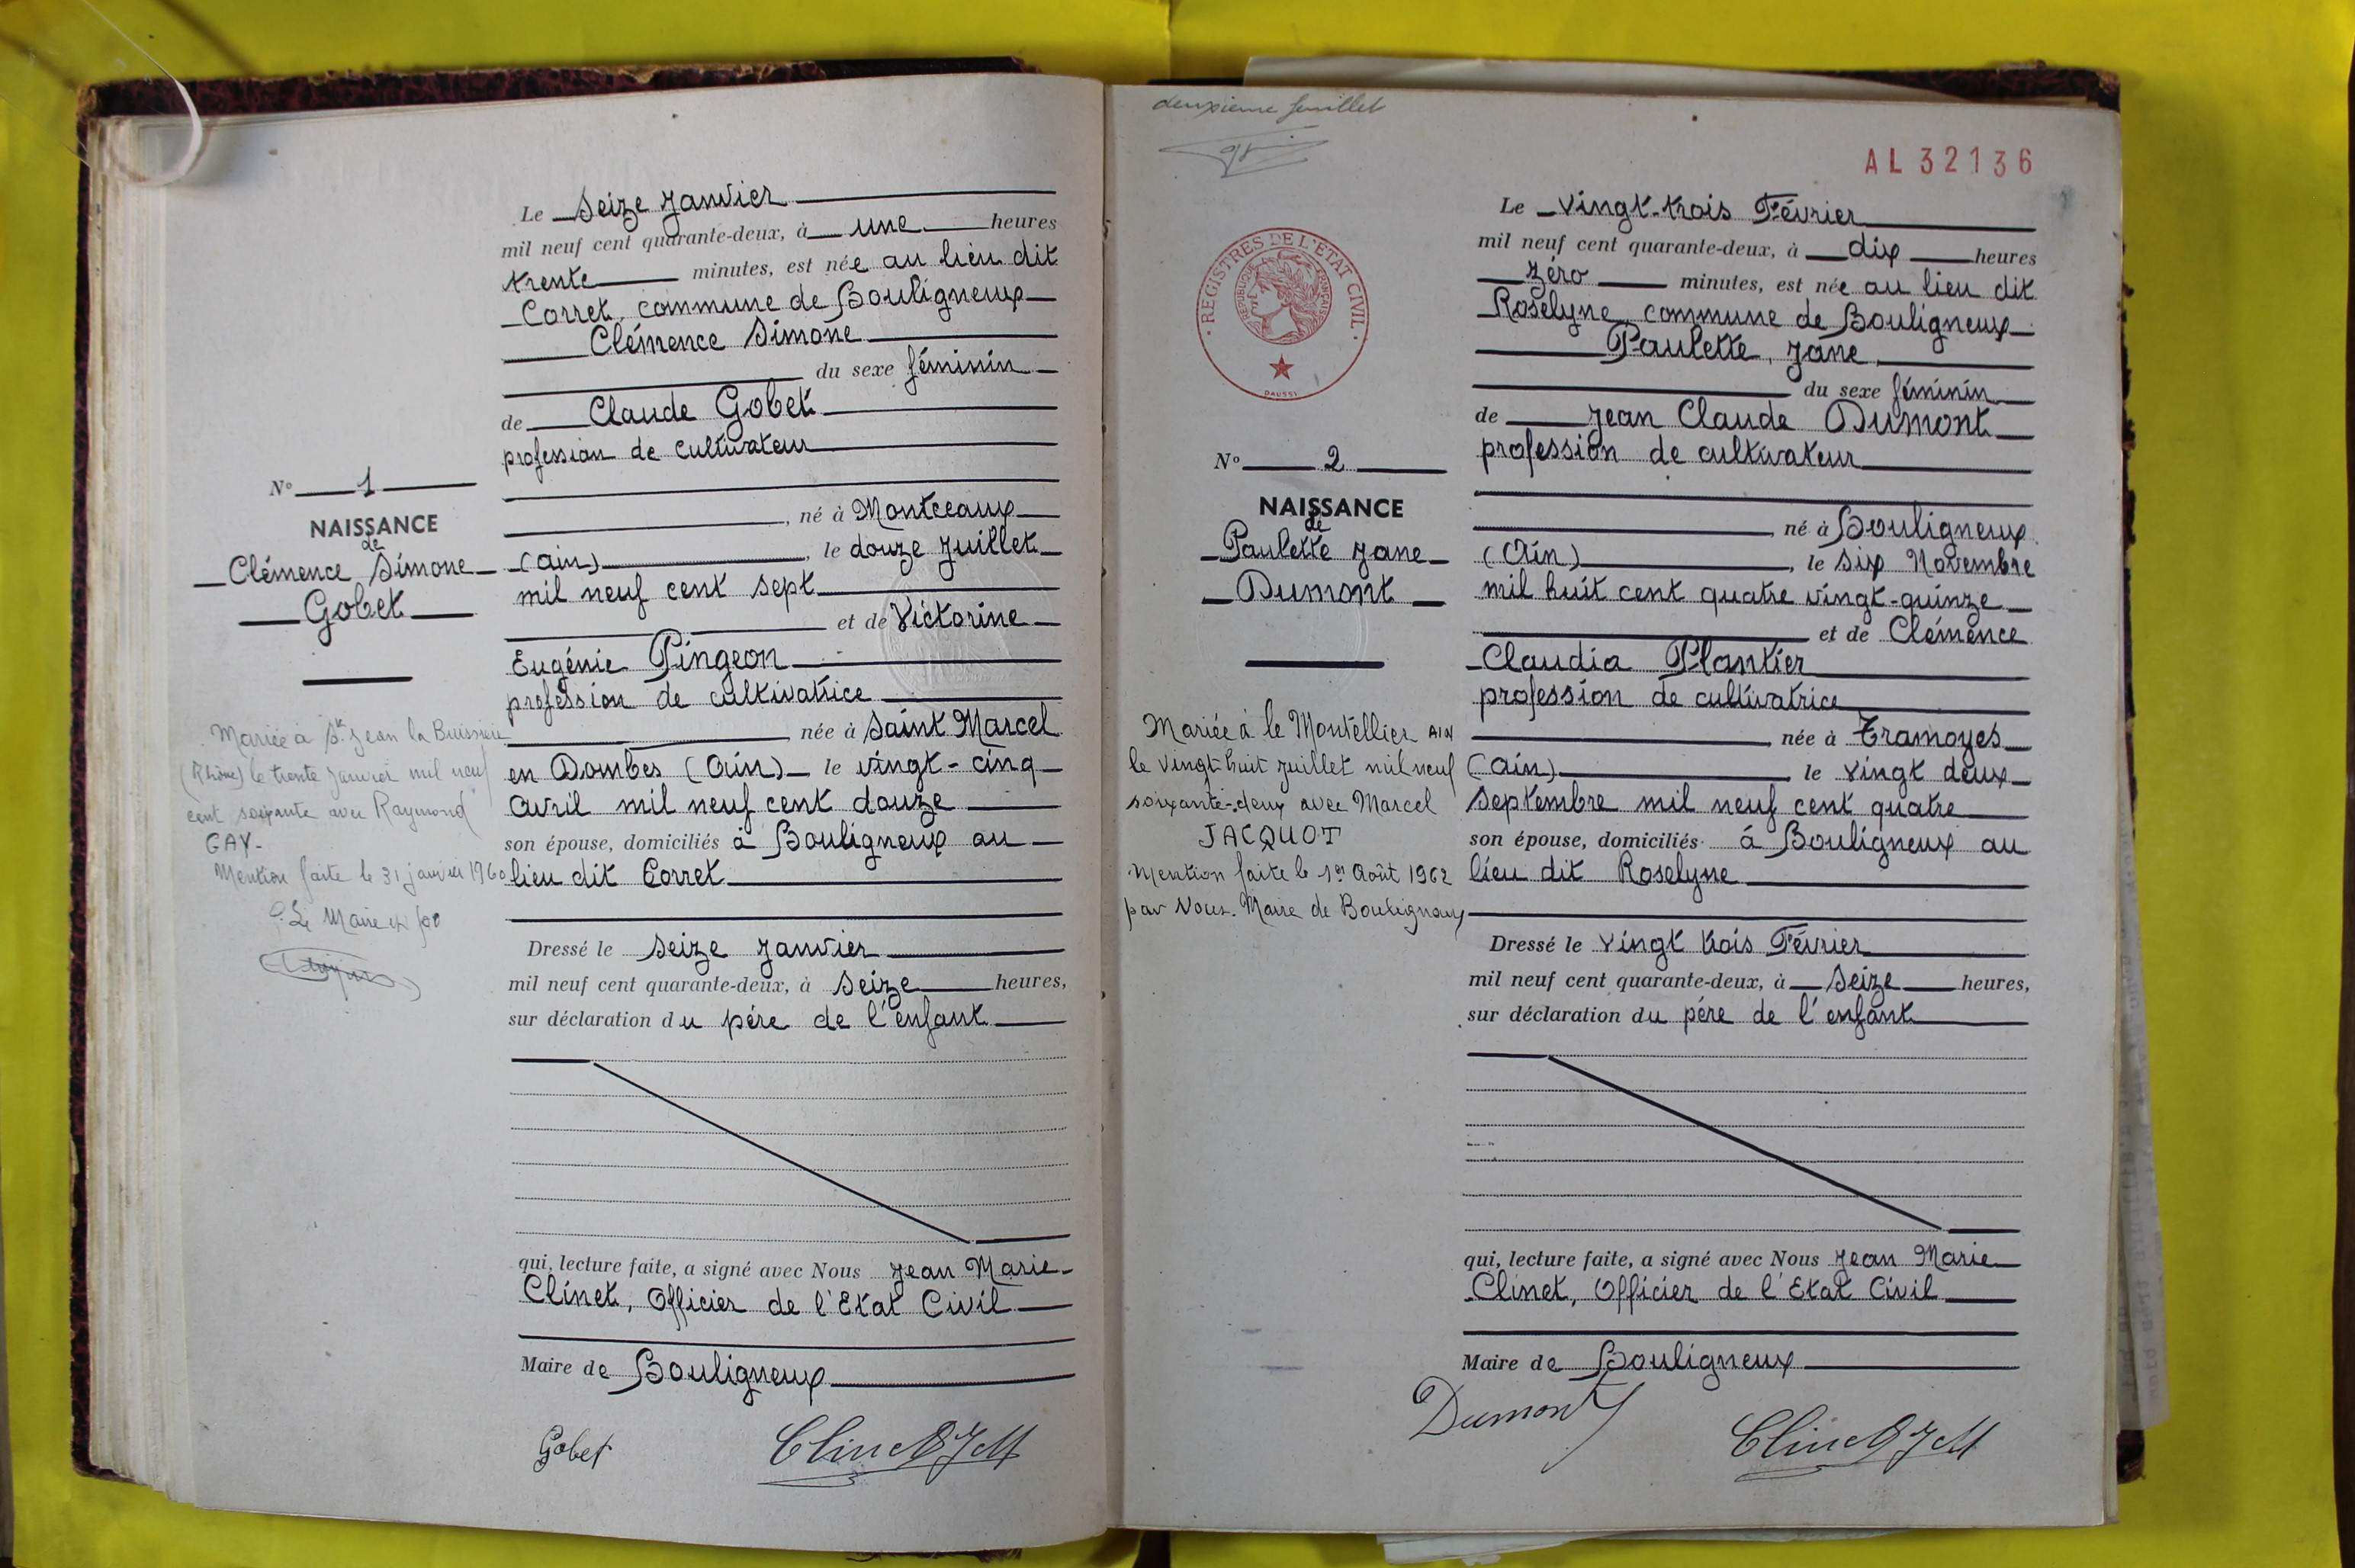 Le Seize Janvier
mil neuf cent quarante-deux, à une heures
trente minutes, est née au lieu dit
Corret, commune de Bouligneux
Clémence Simone
du sexe féminin
de Claude Gobet
profession de cultivateur
N° 1
NAISSANCE
de
Clémence Simone
Gobet
, né à Montceaux
(Ain) , le douze Juillet
mil neuf cent sept
et de Victorine
Eugénie Pingeon
profession de cultivatrice
née à Saint Marcel
en Dombes (Ain) le vingt-cinq
Avril mil neuf cent douze
son épouse, domiciliés à Bouligneux au
lieu dit Corret
Mariée à St. Jean la Bussière
(Rhône) le trente Janvier mil neuf
cent soixante avec Raymond
GAY-
Mention faite le 31 janvier 1960
Le Maire
Dressé le Seize Janvier
mil neuf cent quarante-deux, à Seize heures,
sur déclaration du père de l'enfant
qui, lecture faite, a signé avec Nous Jean Marie
Clinet, Officier de l'Etat Civil
Maire de Bouligneux
Gobet Clinet JM
deuxième feuillet
AL 32136
REGISTRES DE L'ETAT CIVIL
REPUBLIQUE FRANÇAISE
DAUSSY
Le Vingt-trois Février
mil neuf cent quarante-deux, à dix heures
zéro minutes, est née au lieu dit
Roselyne commune de Bouligneux
Paulette, Jane
du sexe féminin
de Jean Claude Dumont
profession de cultivateur
N° 2
NAISSANCE
de
Paulette Jane
Dumont
né à Bouligneux
(Ain) , le Six Novembre
mil huit cent quatre vingt-quinze
et de Clémence
Claudia Plantier
profession de cultivatrice
, née à Tramoyes
(Ain) le vingt deux
Septembre mil neuf cent quatre
son épouse, domiciliés à Bouligneux au
lieu dit Roselyne
Mariée à le Montellier AIN
le vingt-huit Juillet mil neuf
soixante-deux avec Marcel
JACQUOT
Mention faite le 1er Août 1962
par Nous. Maire de Bouligneux
Dressé le Vingt trois Février
mil neuf cent quarante-deux, à Seize heures,
sur déclaration du père de l'enfant
qui, lecture faite, a signé avec Nous Jean Marie
Clinet, Officier de l'Etat Civil
Maire de Bouligneux
Dumont Clinet JM